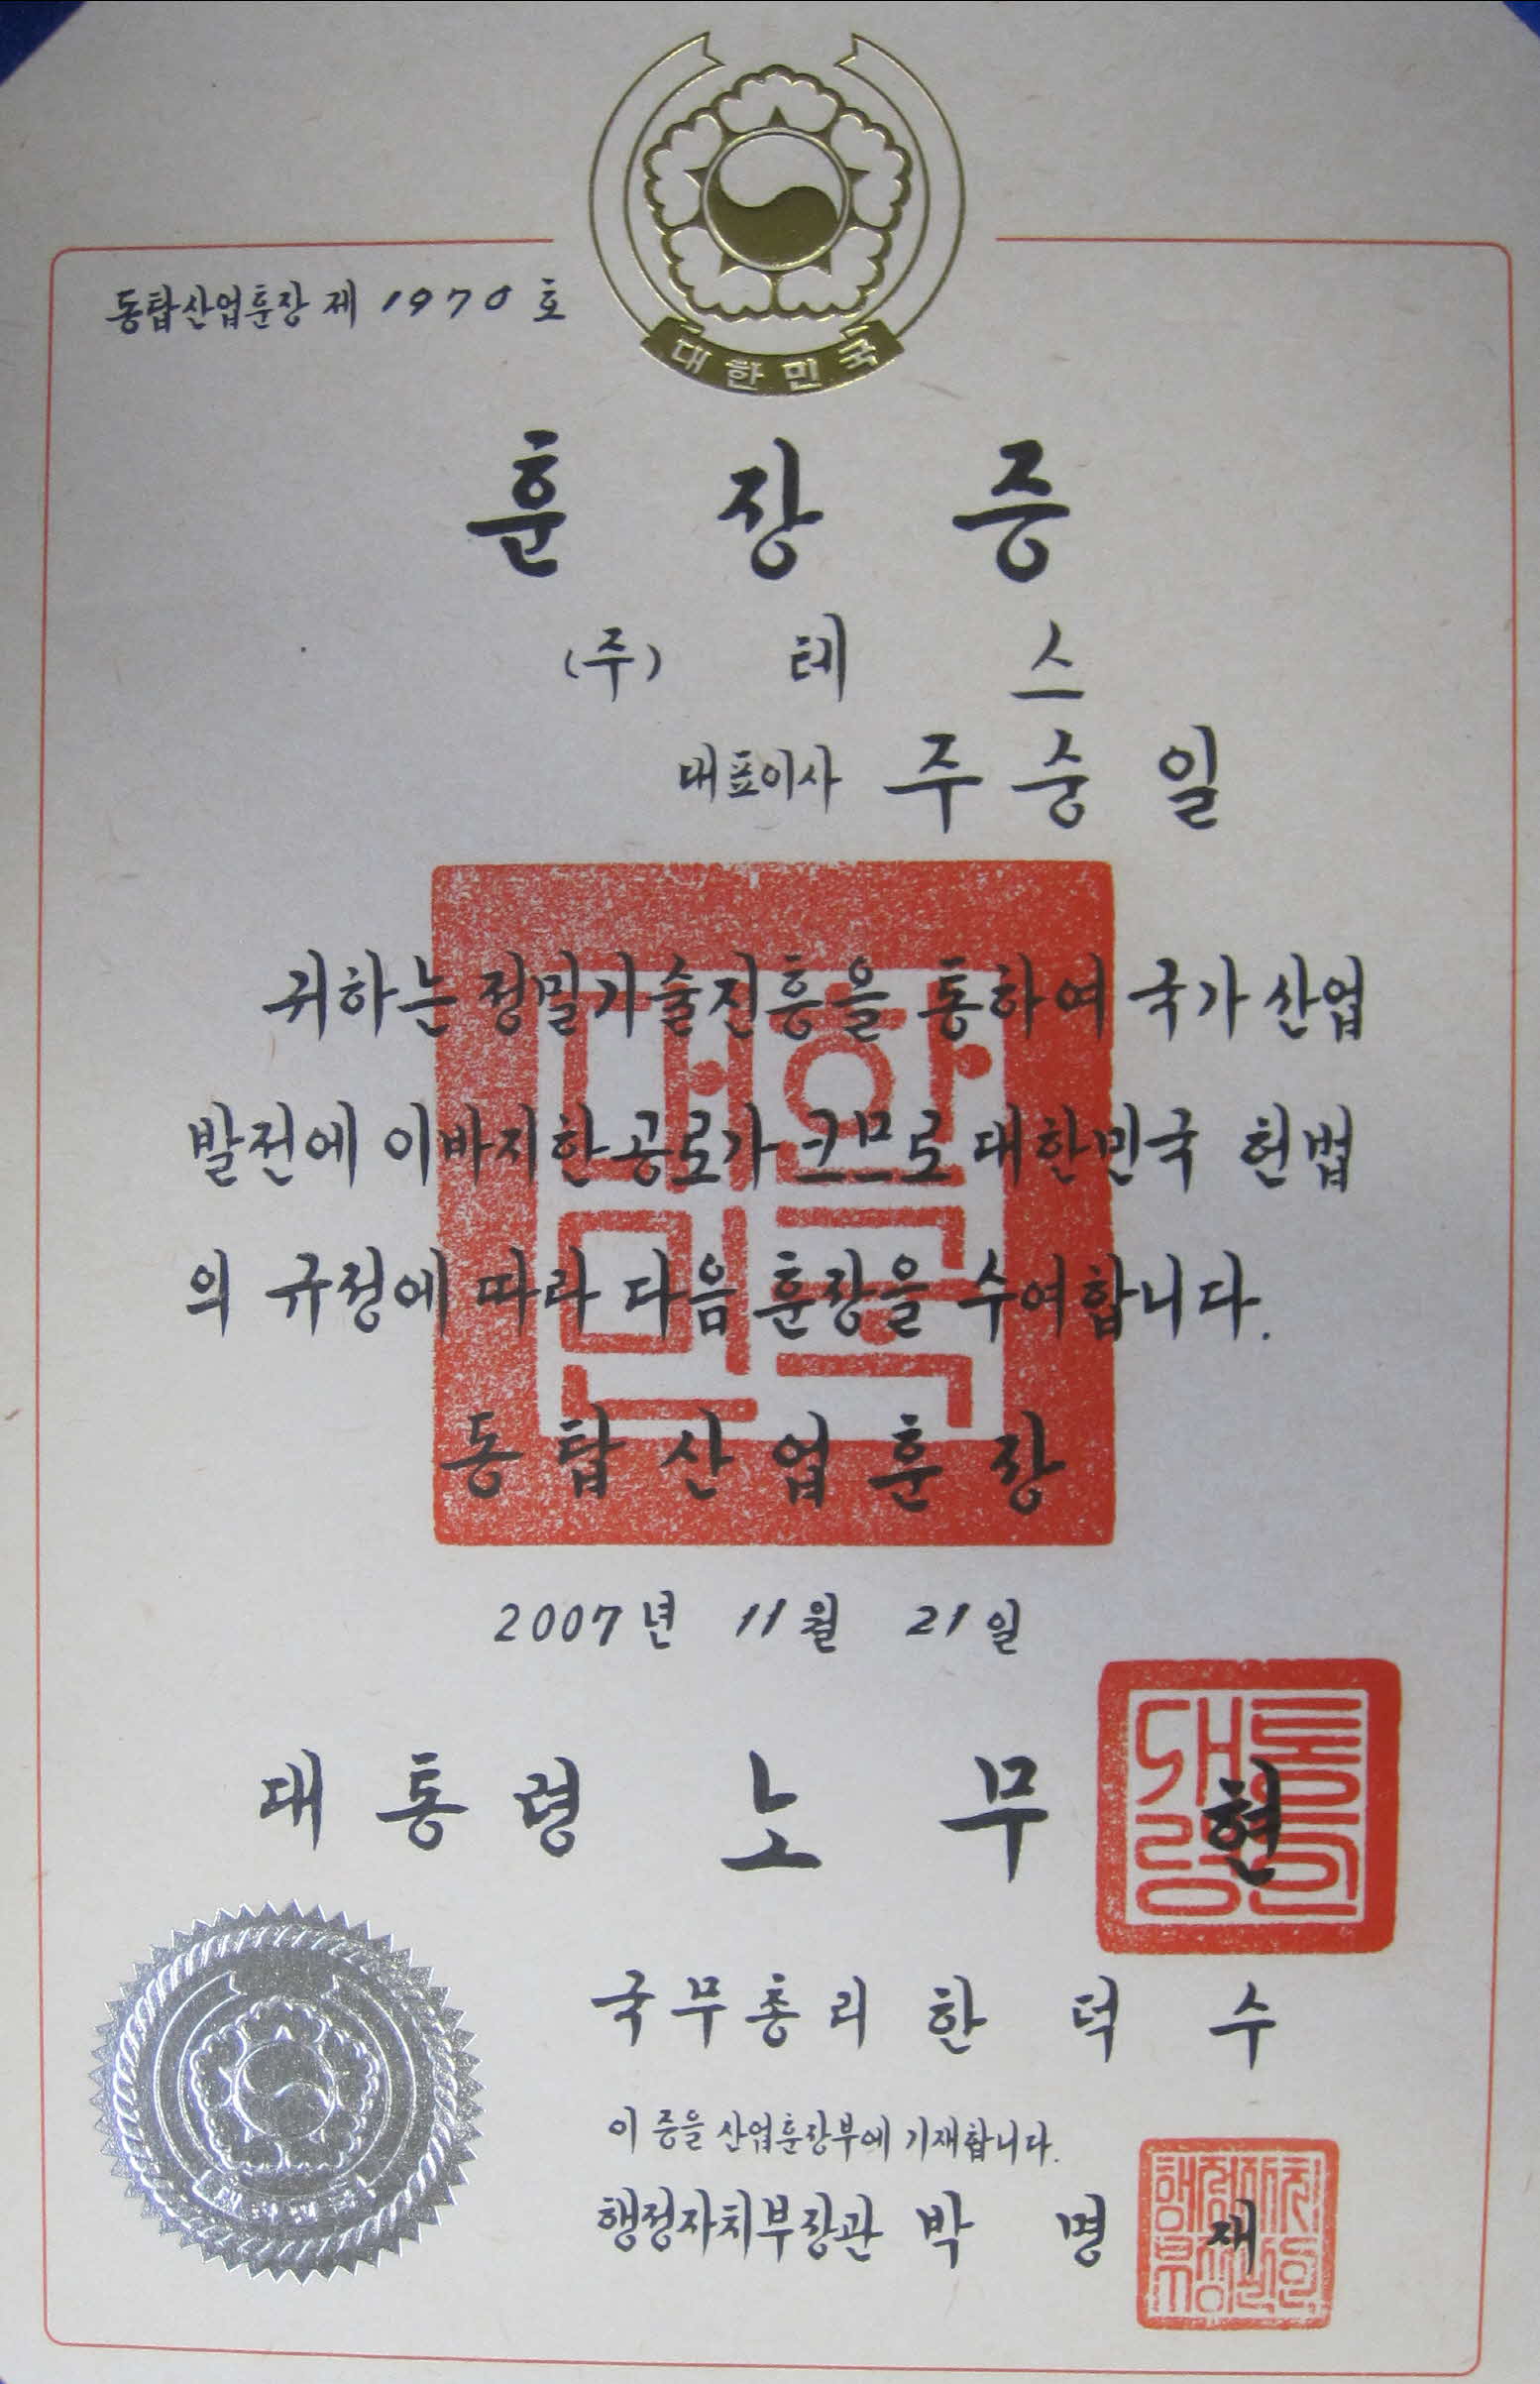 대한민국
동탑산업훈장 제 1970 호
훈 장 증
(주) 테 스
대표이사 주 숭 일
귀하는 정밀기술진흥을 통하여 국가 산업
발전에 이바지한 공로가 크므로 대한민국 헌법
의 규정에 따라 다음 훈장을 수여합니다.
동 탑 산 업 훈 장
2007년 11월 21일
대 통 령 노 무 현
국 무 총 리 한 덕 수
이 증을 산업훈장부에 기재합니다.
행정자치부장관 박 명 재
대한민국